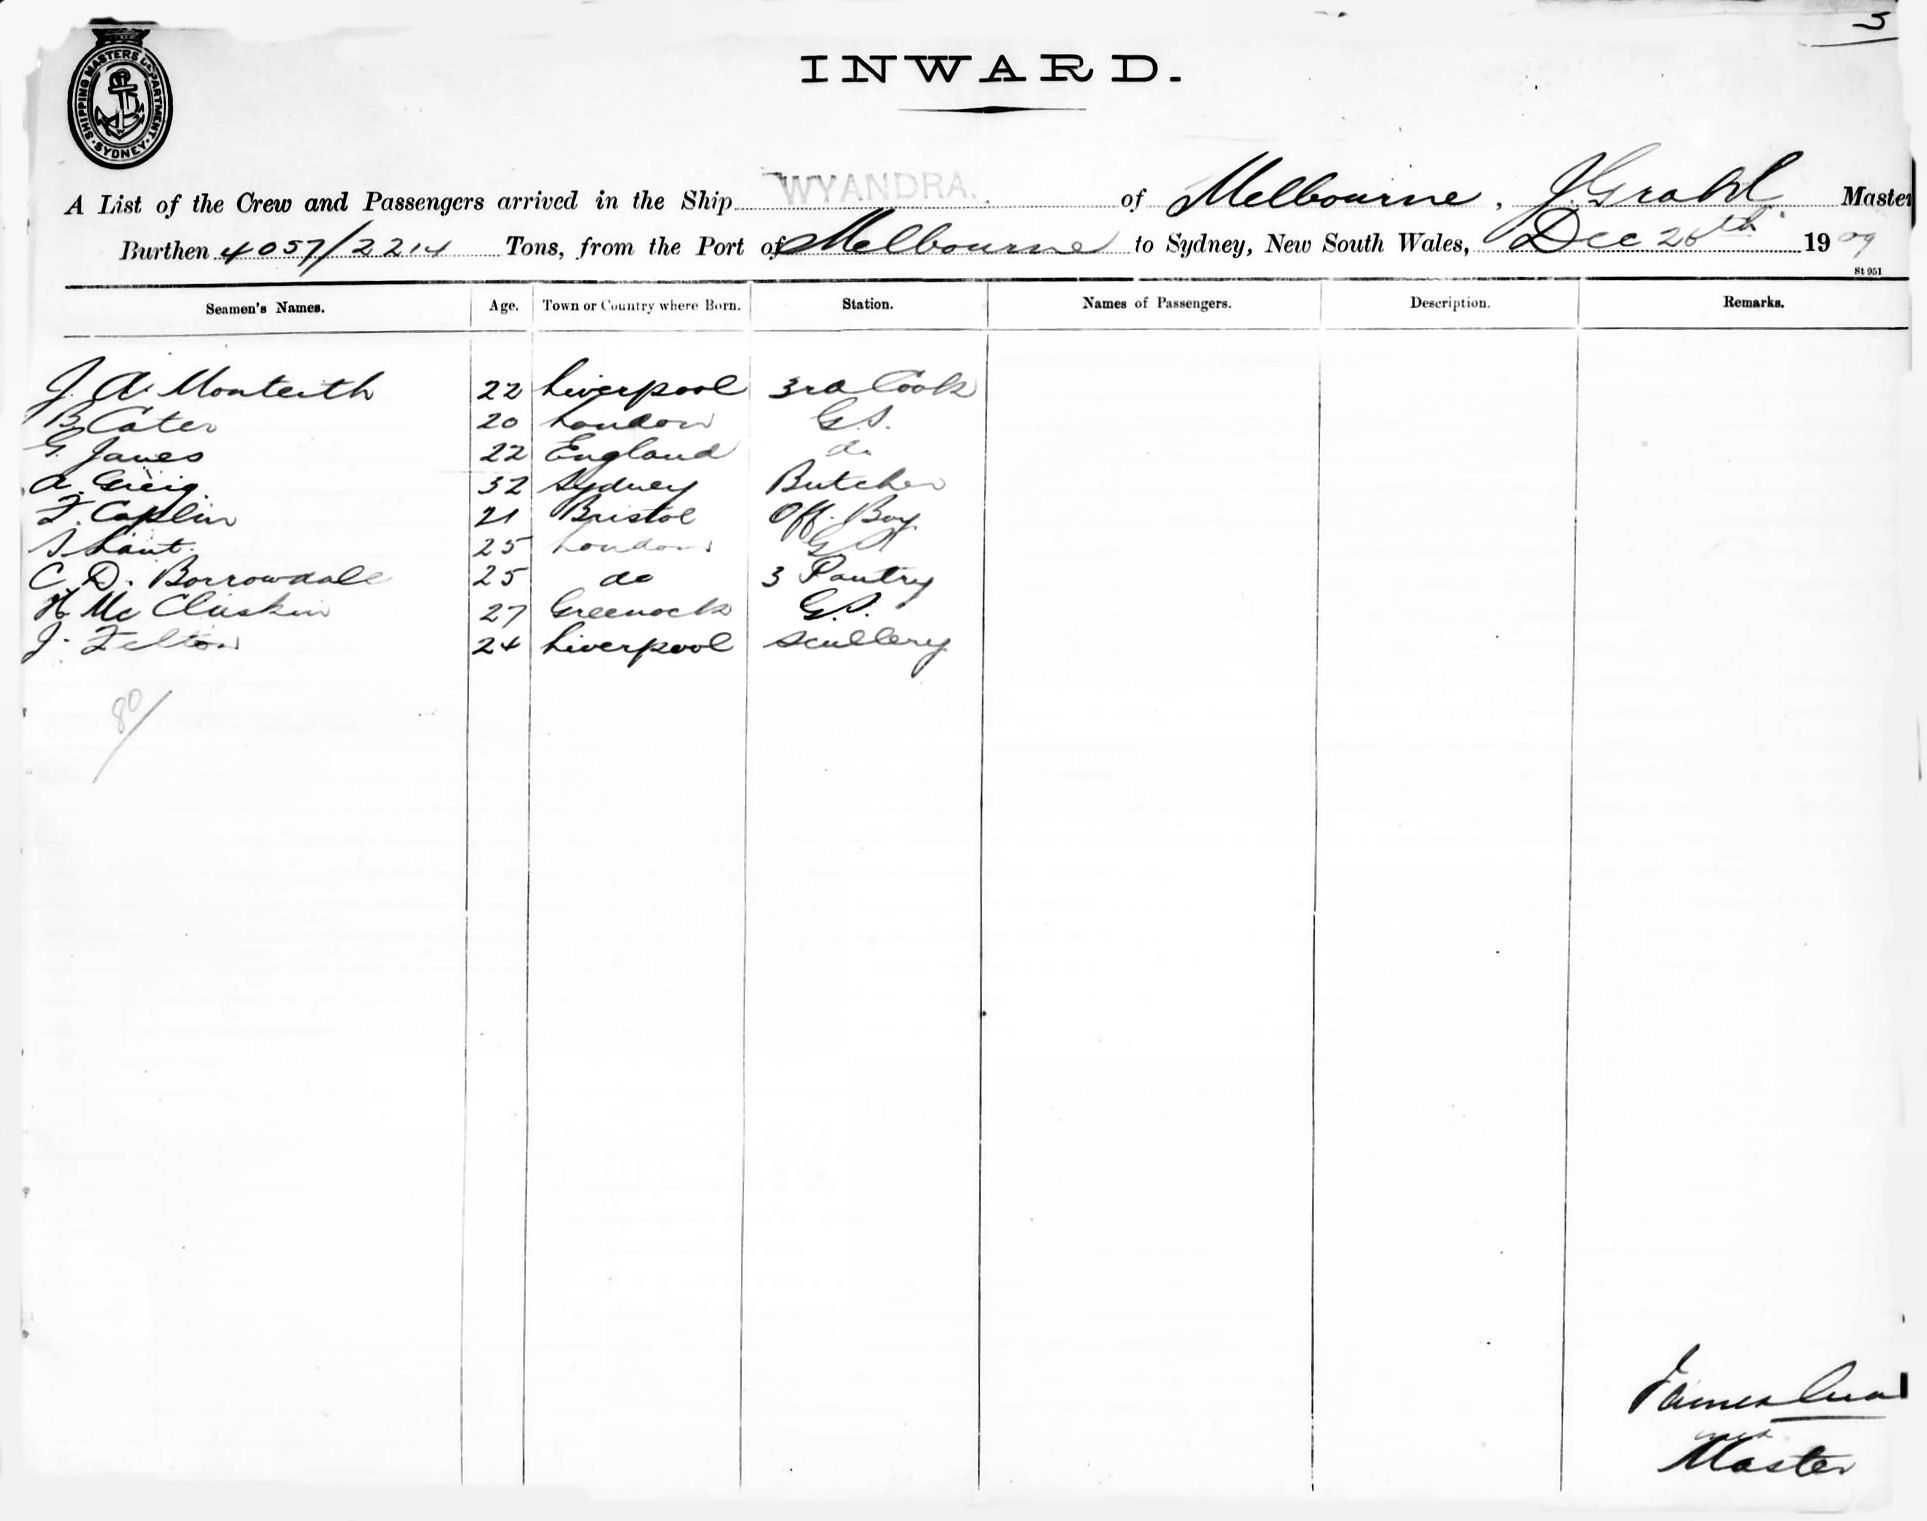 5
INWARD.
SHIPPING MASTERS DEPARTMENT SYDNEY
A List of the Crew and Passengers arrived in the Ship WYANDRA. of Melbourne, J. Grahl Master
Burthen 4057/2214 Tons, from the Port of Melbourne to Sydney, New South Wales, Dec 20th 1909
St 951
Seamen's Names. Age. Town or Country where Born. Station. Names of Passengers. Description. Remarks.
J. A. Monteith 22 Liverpool 3rd Cook
B Cater 20 London G.S.
G. Janes 22 England do
A. Greig 32 Sydney Butcher
F. Caplin 21 Bristol Off. Boy
S Lant. 25 London
C. D. Borrowdale 25 do 3 Pantry
H Mc Cluskin 27 Greenock G.S.
J. Felton 24 Liverpool Scullery
80/
James
Master